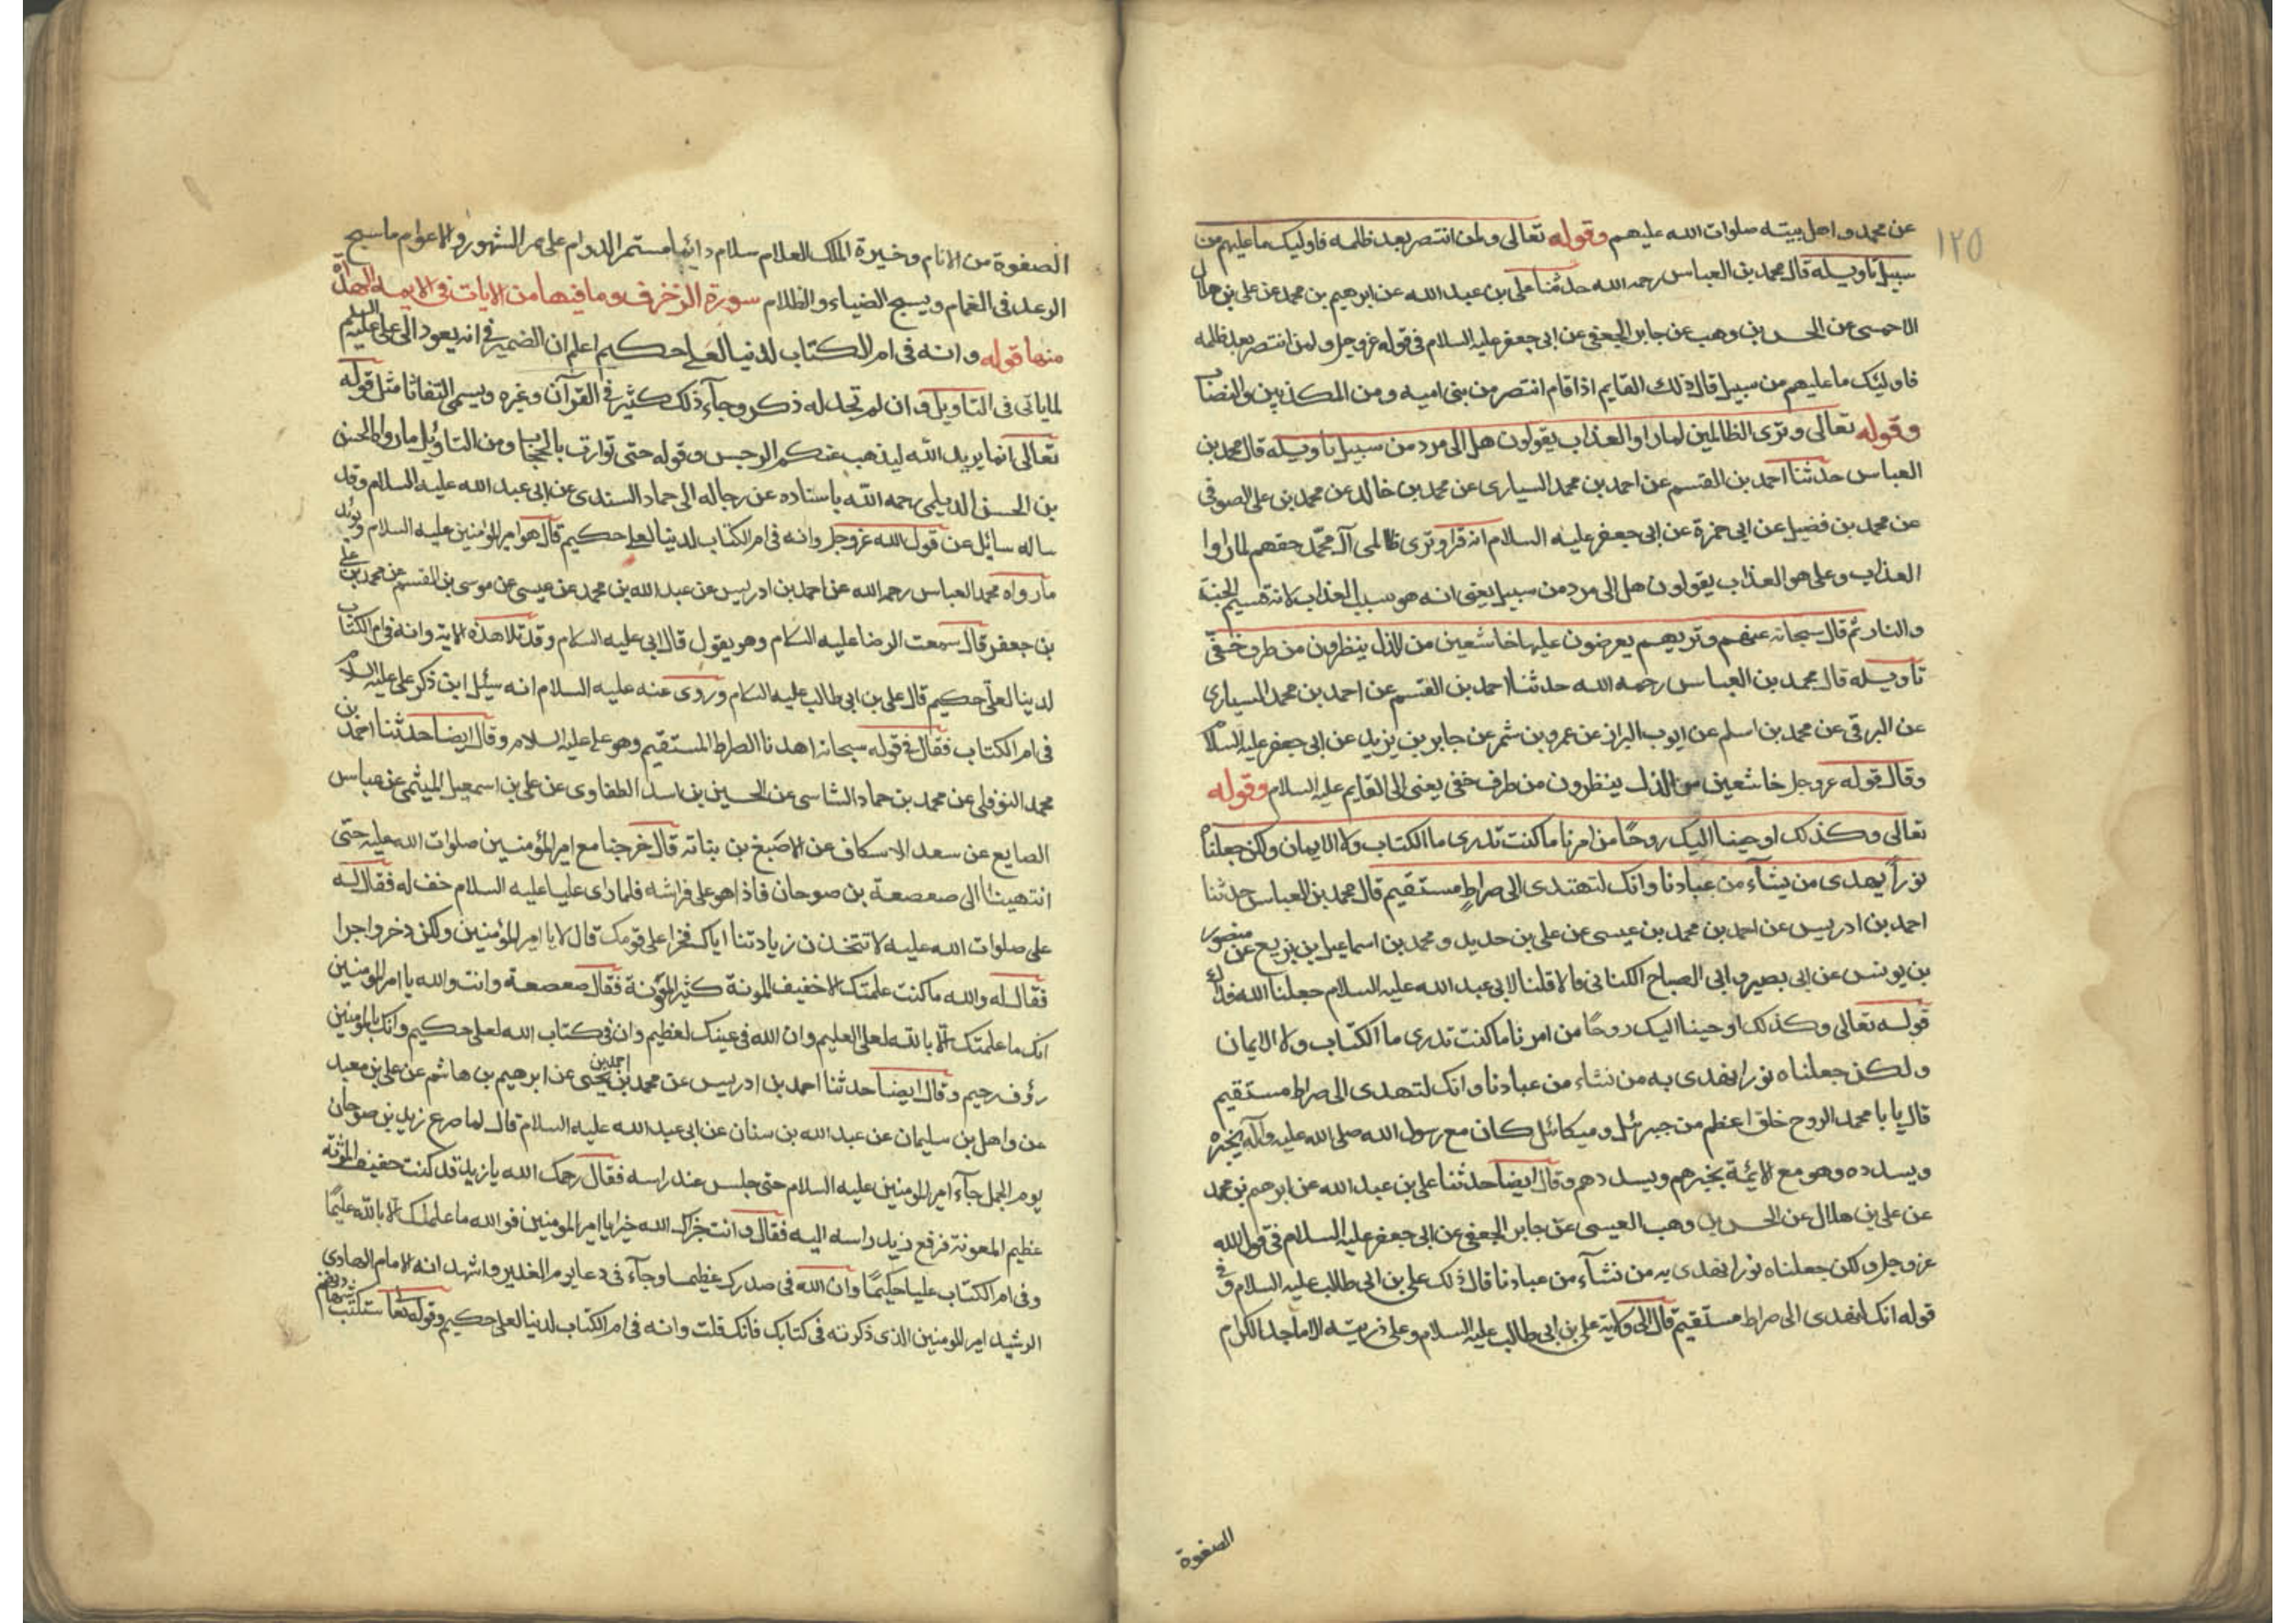 ١٢٥
عن محمد و اهل بيته صلوات الله عليهم وقوله تعالى ولمن انتصر بعد ظلمه فاوليك ما عليهم من
سبيل تاويله قال محمد بن العباس رحمه الله حدثنا على بن عبد الله عن ابرهيم بن محمد عن على بن هلال
الاحمسى عن الحسن بن وهب عن جابر الجعفى عن ابى جعفر عليه السلام فى قوله عز وجل ولمن انتصر بعد ظلمه
فاولئك ما عليهم من سبيل قال ذلك القايم اذا قام انتصر من بنى اميه و من المكذبين والنصاب
وقوله تعالى وترى الظالمين لما راوا العذاب يقولون هل الى مرد من سبيل تاويله قال محمد بن
العباس حدثنا احمد بن القسم عن احمد بن محمد السيارى عن محمد بن خالد عن محمد بن على الصوفى
عن محمد بن فضيل عن ابى حمزة عن ابى جعفر عليه السلام انه قرا وترى ظالمى آل محمّد حقهم لما راوا
العذاب وعلى هو العذاب يقولون هل الى مرد من سبيل يعنى انه هو سبب العذاب لانه قسيم الجنة
والنار ثم قال سبحانه عنهم وتريهم يعرضون عليها خاشعين من الذل ينظرون من طرف خفىّ
تاويله قال محمد بن العباس رحمه الله حدثنا احمد بن القسم عن احمد بن محمد السيارى
عن البرقى عن محمد بن اسلم عن ايوب البزاز عن عمرو بن شمر عن جابر بن يزيد عن ابى جعفر عليه السلام
وقال قوله عز وجل خاشعين من الذل ينظرون من طرف خفى يعنى الى القايم عليه السلام وقوله
تعالى وكذلك اوحينا اليك روحًا من امرنا ما كنت تدرى ما الكتاب ولا الايمان ولكن جعلناه
نوراً يهدى من يشآء من عبادنا وانك لتهتدى الى صراطٍ مستقيم قال محمد بن العباس حدثنا
احمد بن ادريس عن احمد بن محمد بن عيسى عن على بن حديد و محمد بن اسماعيل بن بزيع عن منصور
بن يونس عن ابى بصير و ابى الصباح الكنانى قالا قلنا لابى عبد الله عليه السلام جعلنا الله فداك
قوله تعالى وكذلك اوحينا اليك روحًا من امرنا ما كنت تدرى ما الكتاب ولا الايمان
ولكن جعلناه نورا نهدى به من نشاء من عبادنا وانك لتهدى الى صراط مستقيم
قال يا با محمد الروح خلق اعظم من جبرئيل و ميكائيل كان مع رسول الله صلى الله عليه وآله يخبره
ويسدده وهو مع الائمة يخبرهم ويسددهم وقال ايضا حدثنا على بن عبد الله عن ابرهيم بن محمد
عن على بن هلال عن الحسن بن وهب العبسى عن جابر الجعفى عن ابى جعفر عليه السلام فى قول الله
عز وجل ولكن جعلناه نورا نهدى به من نشآء من عبادنا قال ذلك على بن ابى طالب عليه السلام و فى
قوله انك لتهدى الى صراط مستقيم قال الى ولاية على بن ابى طالب عليه السلام وعلى ذريته الاماجد الكرام
الصفوة
الصفوة من الانام و خيرة الملك العلام سلام دائما مستمر الدوام على مر الشهور والاعوام ما سبح
الرعد فى الغمام ويسبح الضياء والظلام سورة الزخرف وما فيها من الآيات فى الائمة الهداة
منها قوله وانه فى ام الكتاب لدينا لعلى حكيم اعلم ان الضمير فى انه يعود الى على عليه السلم
لما ياتى فى التاويل وان لم تجد له ذكر وجآء ذلك كثير فى القرآن وغيره ويسمى التفاتا مثل قوله
تعالى انما يريد الله ليذهب عنكم الرجس وقوله حتى توارت بالحجاب ومن التاويل ما رواه الحسن
بن الحسن الديلمى رحمه الله باسناده عن رجاله الى حماد السندى عن ابى عبد الله عليه السلام وقد
ساله سائل عن قول الله عز وجل وانه فى ام الكتاب لدينا لعلى حكيم قال هو امير المومنين عليه السلام ويؤيد
ما رواه محمد العباس رحمه الله عن احمد بن ادريس عن عبد الله بن محمد عن عيسى عن موسى بن القسم عن محمد بن على
بن جعفر قال سمعت الرضا عليه السلام وهو يقول قال ابى عليه السلام وقد تلا هذه الاية وانه فى ام الكتاب
لدينا لعلىّ حكيم قال على بن ابى طالب عليه السلام وروى عنه عليه السلام انه سئل اين ذكر على عليه السلام
فى ام الكتاب فقال فى قوله سبحانه اهدنا الصراط المستقيم وهو على عليه السلام وقال ايضا حدثنا احمد بن
محمد النوفلى عن محمد بن حماد الشاسى عن الحسين بن اسد الطفاوى عن على بن اسمعيل الميثمى عن عباس
الصايغ عن سعد الاسكاف عن الاصبغ بن بناته قال خرجنا مع امير المؤمنين صلوات الله عليه حتى
انتهينا الى صعصعة بن صوحان فاذا هو على فراشه فلما راى عليا عليه السلام خف له فقال له
على صلوات الله عليه لا تتخذن زيادتنا اياك فخرا على قومك قال لا يا امير المؤمنين ولكن ذخر واجرا
فقال له والله ما كنت علمتك الا خفيف المونة كثير المؤنة فقال صعصعة وانت والله يا امير المومنين
انك ما علمتك الا بالله لعلى العليم وان الله فى عينك لعظيم وان فى كتاب الله لعلى حكيم وانك بالمومنين
رؤف رحيم وقال ايضا حدثنا احمد بن ادريس عن محمد بن احمد بن يحيى عن ابرهيم بن هاشم عن على بن معبد
عن واهل بن سليمان عن عبد الله بن سنان عن ابى عبد الله عليه السلام قال لما صرع زيد بن صوحان
يوم الجمل جآء امير المومنين عليه السلام حتى جلس عند راسه فقال رحمك الله يا زيد قد كنت خفيف المؤنة
عظيم المعونة فرفع زيد راسه اليه فقال وانت جزاك الله خيرا يا امير المومنين فوالله ما علمتك الا بالله عليمًا
وفى ام الكتاب عليا حكيمًا وان الله فى صدرك عظيما وجآء فى دعا يوم الغدير واشهد انه الامام الهادى
الرشيد امير المومنين الذى ذكرته فى كتابك فانك قلت وانه فى ام الكتاب لدينا لعلى حكيم وقوله تعا ستكتب شهادتهم